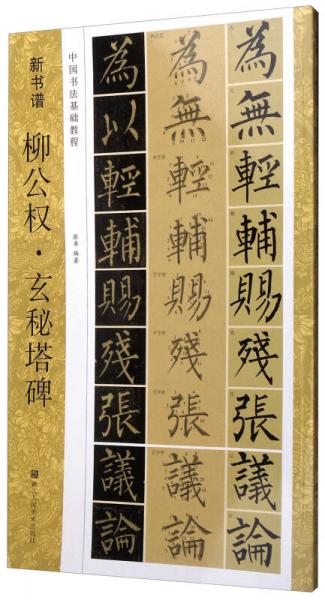 新书谱
柳公权·玄秘塔碑
浙江人民美术出版社
中国书法基础教程
编著
為以輕輔賜殘張議論
為無輕輔賜殘張議論
為無輕輔賜殘張議論